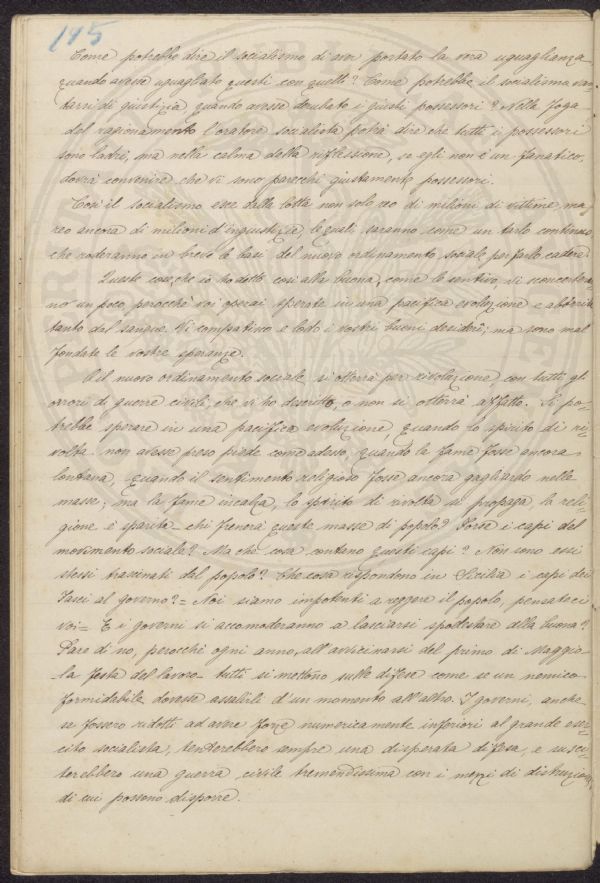 145
Come potrebbe dire il socialismo di aver portato la vera uguaglianza
quando avesse uguagliato questi con quelli? Come potrebbe il socialismo van-
tarsi di giustizia quando avesse derubato i giusti possessori? Nella foga
del ragionamento l'oratore socialista potrà dire che tutti i possessori
sono ladri, ma nella calma della riflessione, se egli non è un fanatico,
dovrà convenire che vi sono parecchi giustamente possessori.
Così il socialismo esce dalla lotta non solo reo di milioni di vittime, ma
reo ancora di milioni d'ingiustizie, le quali saranno come un tarlo continuo
che roderanno in breve le basi del nuovo ordinamento sociale per farlo cadere.
Queste cose, che io ho detto così alla buona, come le sentivo, vi sconcerteran-
no un poco, perocchè voi operai sperate in una pacifica evoluzione e abborrite
tanto dal sangue. Vi compatisco e lodo i vostri buoni desideri; ma sono mal
fondate le vostre speranze.
O il nuovo ordinamento sociale si otterrà per rivoluzione, con tutti gli
orrori di guerre civili che vi ho descritto, o non si otterrà affatto. Si po-
trebbe sperare in una pacifica evoluzione, quando lo spirito di ri-
volta non avesse preso piede come adesso, quando la fame fosse ancora
lontana, quando il sentimento religioso fosse ancora gagliardo nelle
masse; ma la fame incalza, lo spirito di rivolta si propaga, la reli-
gione è sparita - chi frenerà queste masse di popolo? Forse i capi del
movimento sociale? Ma che cosa contano questi capi? Non sono essi
stessi trascinati dal popolo? Che cosa rispondono in Sicilia i capi dei
Fasci al governo? = Noi siamo impotenti a reggere il popolo, pensateci
voi = E i governi si accomoderanno a lasciarsi spodestare alla buona?
Pare di no, perocchè ogni anno, all'avvicinarsi del primo di Maggio
-la festa del lavoro- tutti si mettono sulle difese come se un nemico
formidabile dovesse assalirli d'un momento all'altro. I governi, anche
se fossero ridotti ad avere forze numericamente inferiori al grande eser-
cito socialista, tenterebbero sempre una disperata difesa, e susci-
terebbero una guerra civile tremendissima con i mezzi di distruzione
di cui possono disporre.